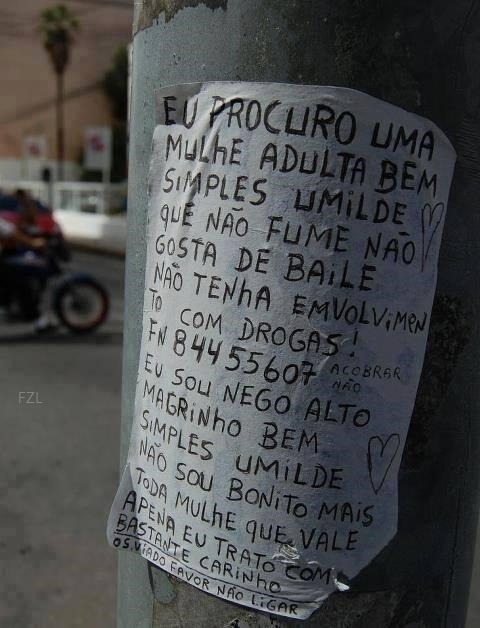 EU PROCURO UMA
MULHE ADULTA BEM
SIMPLES UMILDE
QUE NÃO FUME NÃO
GOSTA DE BAILE
NÃO TENHA EMVOLVIMEN
TO COM DROGAS!
FN 84455607 ACOBRAR
NÃO
EU SOU NEGO ALTO
MAGRINHO BEM
SIMPLES UMILDE
NÃO SOU BONITO MAIS
TODA MULHE QUE VALE
APENA EU TRATO COM
BASTANTE CARINHO
OS.VIADO FAVOR NÃO LIGAR
FZL